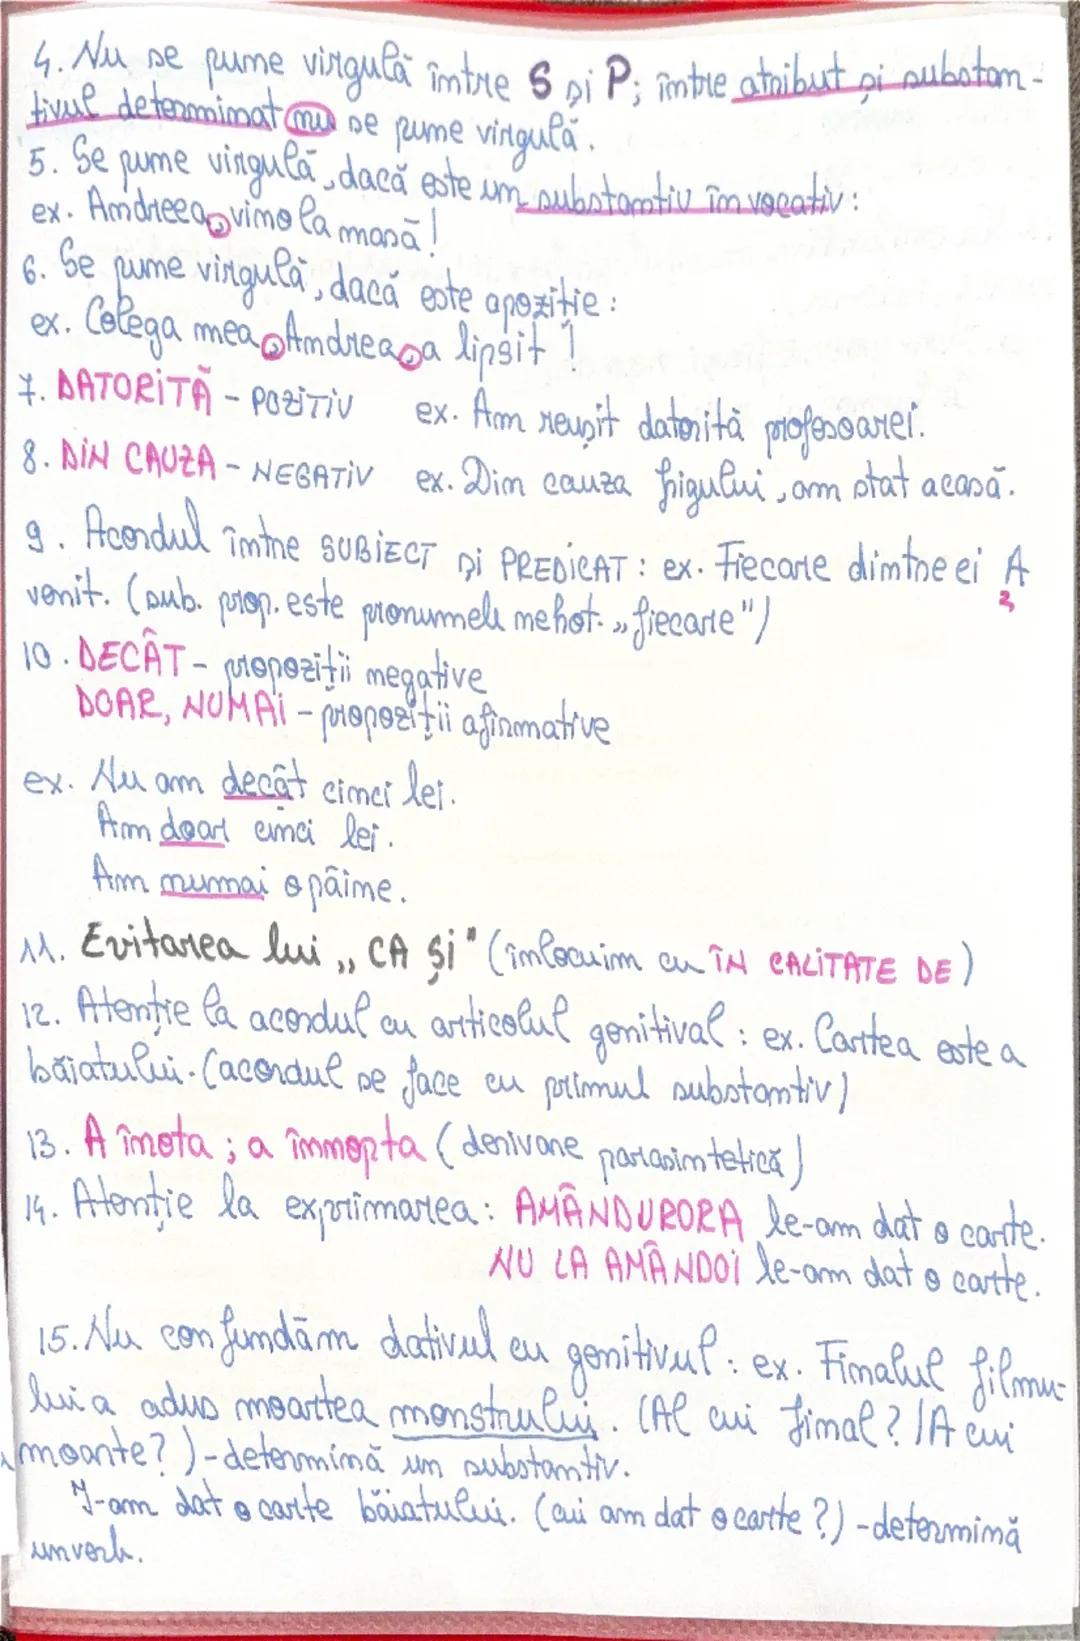 4. Nu se pune virgulă între S și P; între atribut și substan-
tivul determinat nu se pune virgulă.
5. Se pune virgulă, dacă este un substantiv în vocativ:
ex. Andreea, vino la masă!
6. Se pune virgulă, dacă este apoziție:
ex. Colega mea, Andreea, a lipsit!
7. DATORITĂ - POZITIV ex. Am reușit datorită profesoarei.
8. DIN CAUZA - NEGATIV ex. Din cauza frigului, am stat acasă.
9. Acordul între SUBIECT și PREDICAT: ex. Fiecare dintre ei A
venit. (sub. prop. este pronumele nehot. „fiecare")
10. DECÂT - propoziții negative
DOAR, NUMAI - propoziții afirmative
ex. Nu am decât cinci lei.
Am doar cinci lei.
Am numai o pâine.
11. Evitarea lui „CA ȘI" (înlocuim cu ÎN CALITATE DE)
12. Atenție la acordul cu articolul genitival: ex. Cartea este a
băiatului. (acordul se face cu primul substantiv)
13. A înota; a înnopta (derivare parasintetică)
14. Atenție la exprimarea: AMÂNDURORA le-am dat o carte.
NU LA AMÂNDOI le-am dat o carte.
15. Nu confundăm dativul cu genitivul: ex. Finalul filmu-
lui a adus moartea monstrului. (Al cui final? / A cui
moarte?) - determină un substantiv.
I-am dat o carte băiatului. (cui am dat o carte?) - determină
un verb.